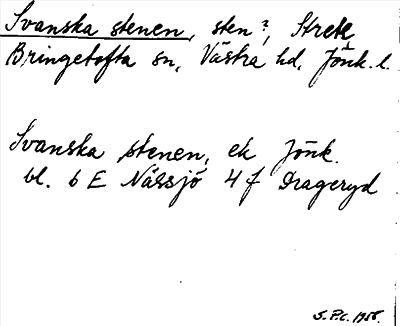 Svanska stenen, sten?, Streteред
Bringetofta sn, Västra hd, Jönk. l.
Svanska stenen, ek Jönk.
bl. 6 E Nässjö 4 f Drageryd
S.P.C. 1958.